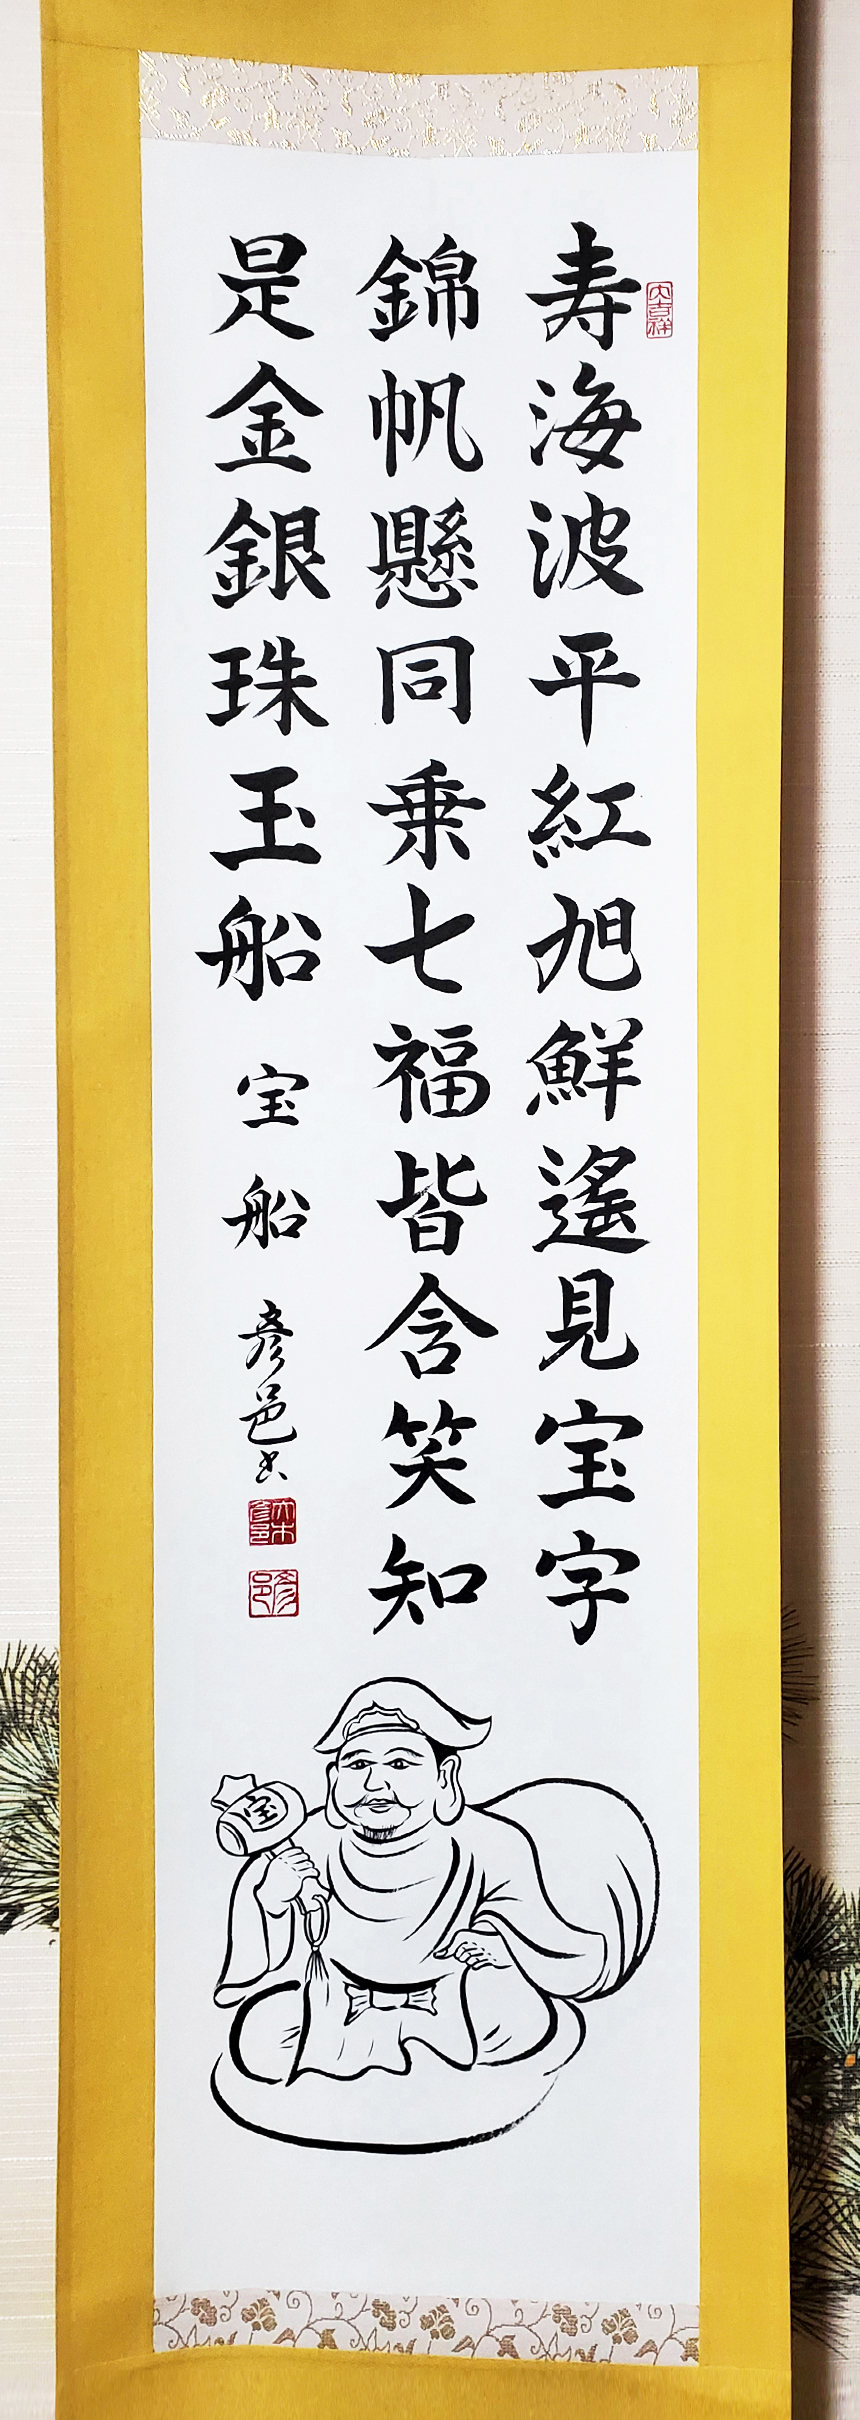 寿海波平紅旭鮮遙見宝字
錦帆懸同乗七福皆含笑知
是金銀珠玉船 宝船 彦邑書
大吉祥
宝